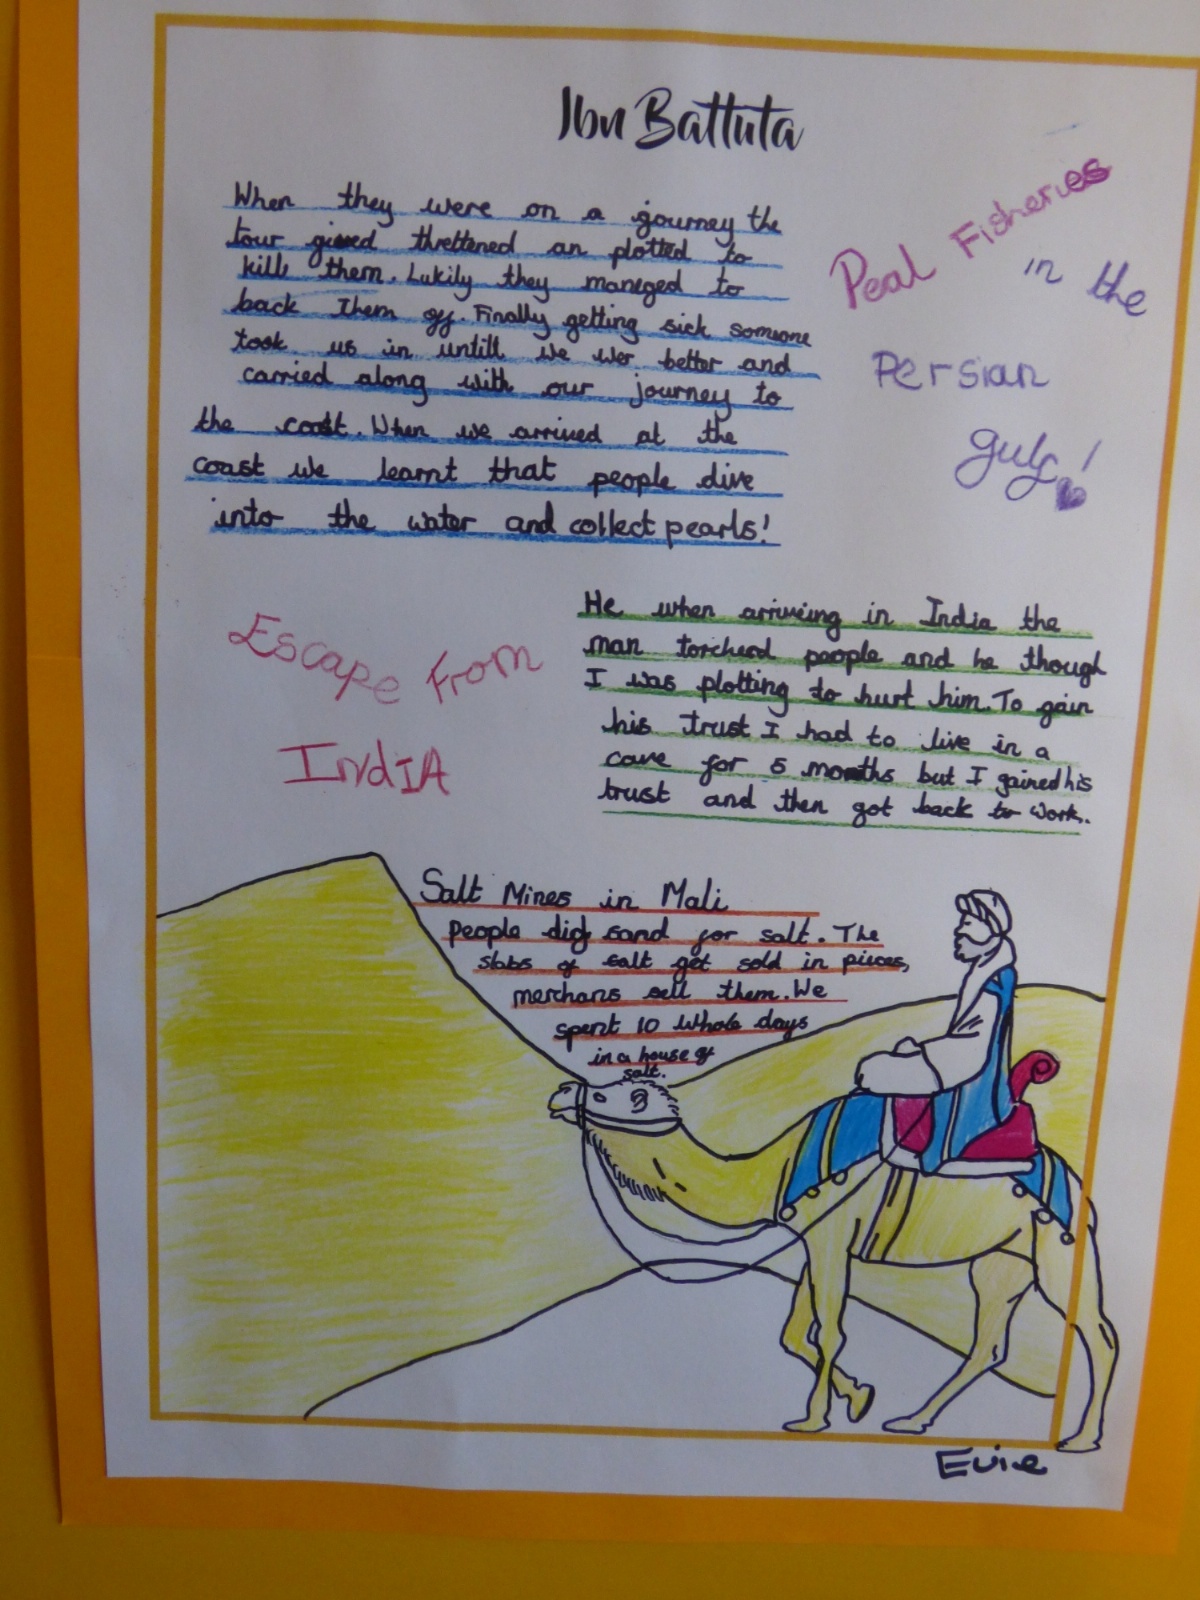 Ibn Battuta
When they were on a journey the
tour gieed threttened an plotted to
kill them. Lukily they maneged to
back them off. Finally getting sick someone
took us in untill we wer better and
carried along with our journey to
the coast. When we arrived at the
coast we learnt that people dive
into the water and collect pearls!
Peal Fisheries
in the
Persian
gulf!
Escape From
IndIA
He when arriveing in India the
man torcherd people and he though
I was plotting to hurt him. To gain
his trust I had to live in a
cave for 5 months but I gained his
trust and then got back to work.
Salt Mines in Mali
People dig sand for salt. The
slabs of salt get sold in pieces,
merchans sell them. We
spent 10 whole days
in a house of
salt.
Evie